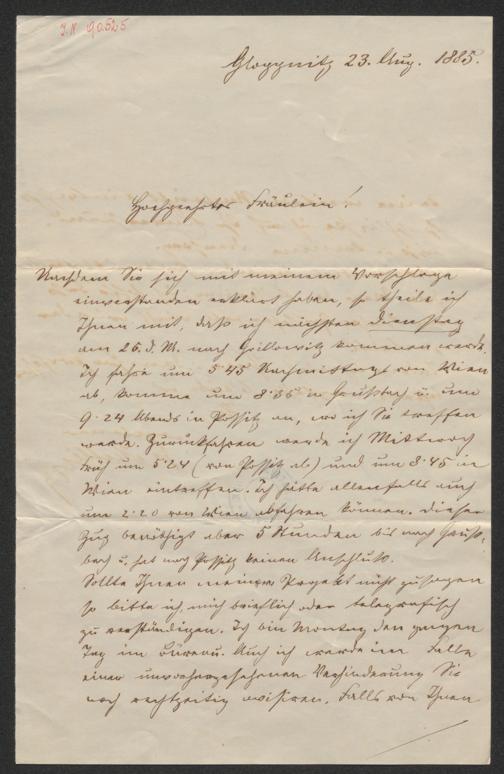 I.N. 90.525
Gloggnitz 23. Aug. 1885.
Hochgeehrtes Fräulein!
Nachdem Sie sich mit meinem Vorschlage
einverstanden erklärt haben, so theile ich
Ihnen mit, daß ich nächsten Dienstag
am 25. d. M. nach Grillowitz kommen werde.
Ich fahre um 5·45 Nachmittagt von Wien
ab, komme um 8·35 in Grußbach u. um
9·24 Abends in Possitz an, wo ich Sie treffen
werde. Zurückfahren werde ich Mittwoch
früh um 5·24 (von Possitz ab) und um 8·45 in
Wien eintreffen. Ich hätte allenfalls auch
um 2·20 von Wien abfahren können. Dieser
Zug benöthigt aber 5 Stunden bis nach Gruss-
bach u. hat nach Possitz keinen Anschluß.
Sollte Ihnen meines Projekt nicht zusagen
so bitte ich mich brieflich oder telegrafisch
zu verständigen. Ich bin Montag den ganzen
Tag im Büreau. Auch ich werde im Falle
einer unvorhergesehenen Verhinderung Sie
noch rechtzeitig avisiren. Falls von Ihnen